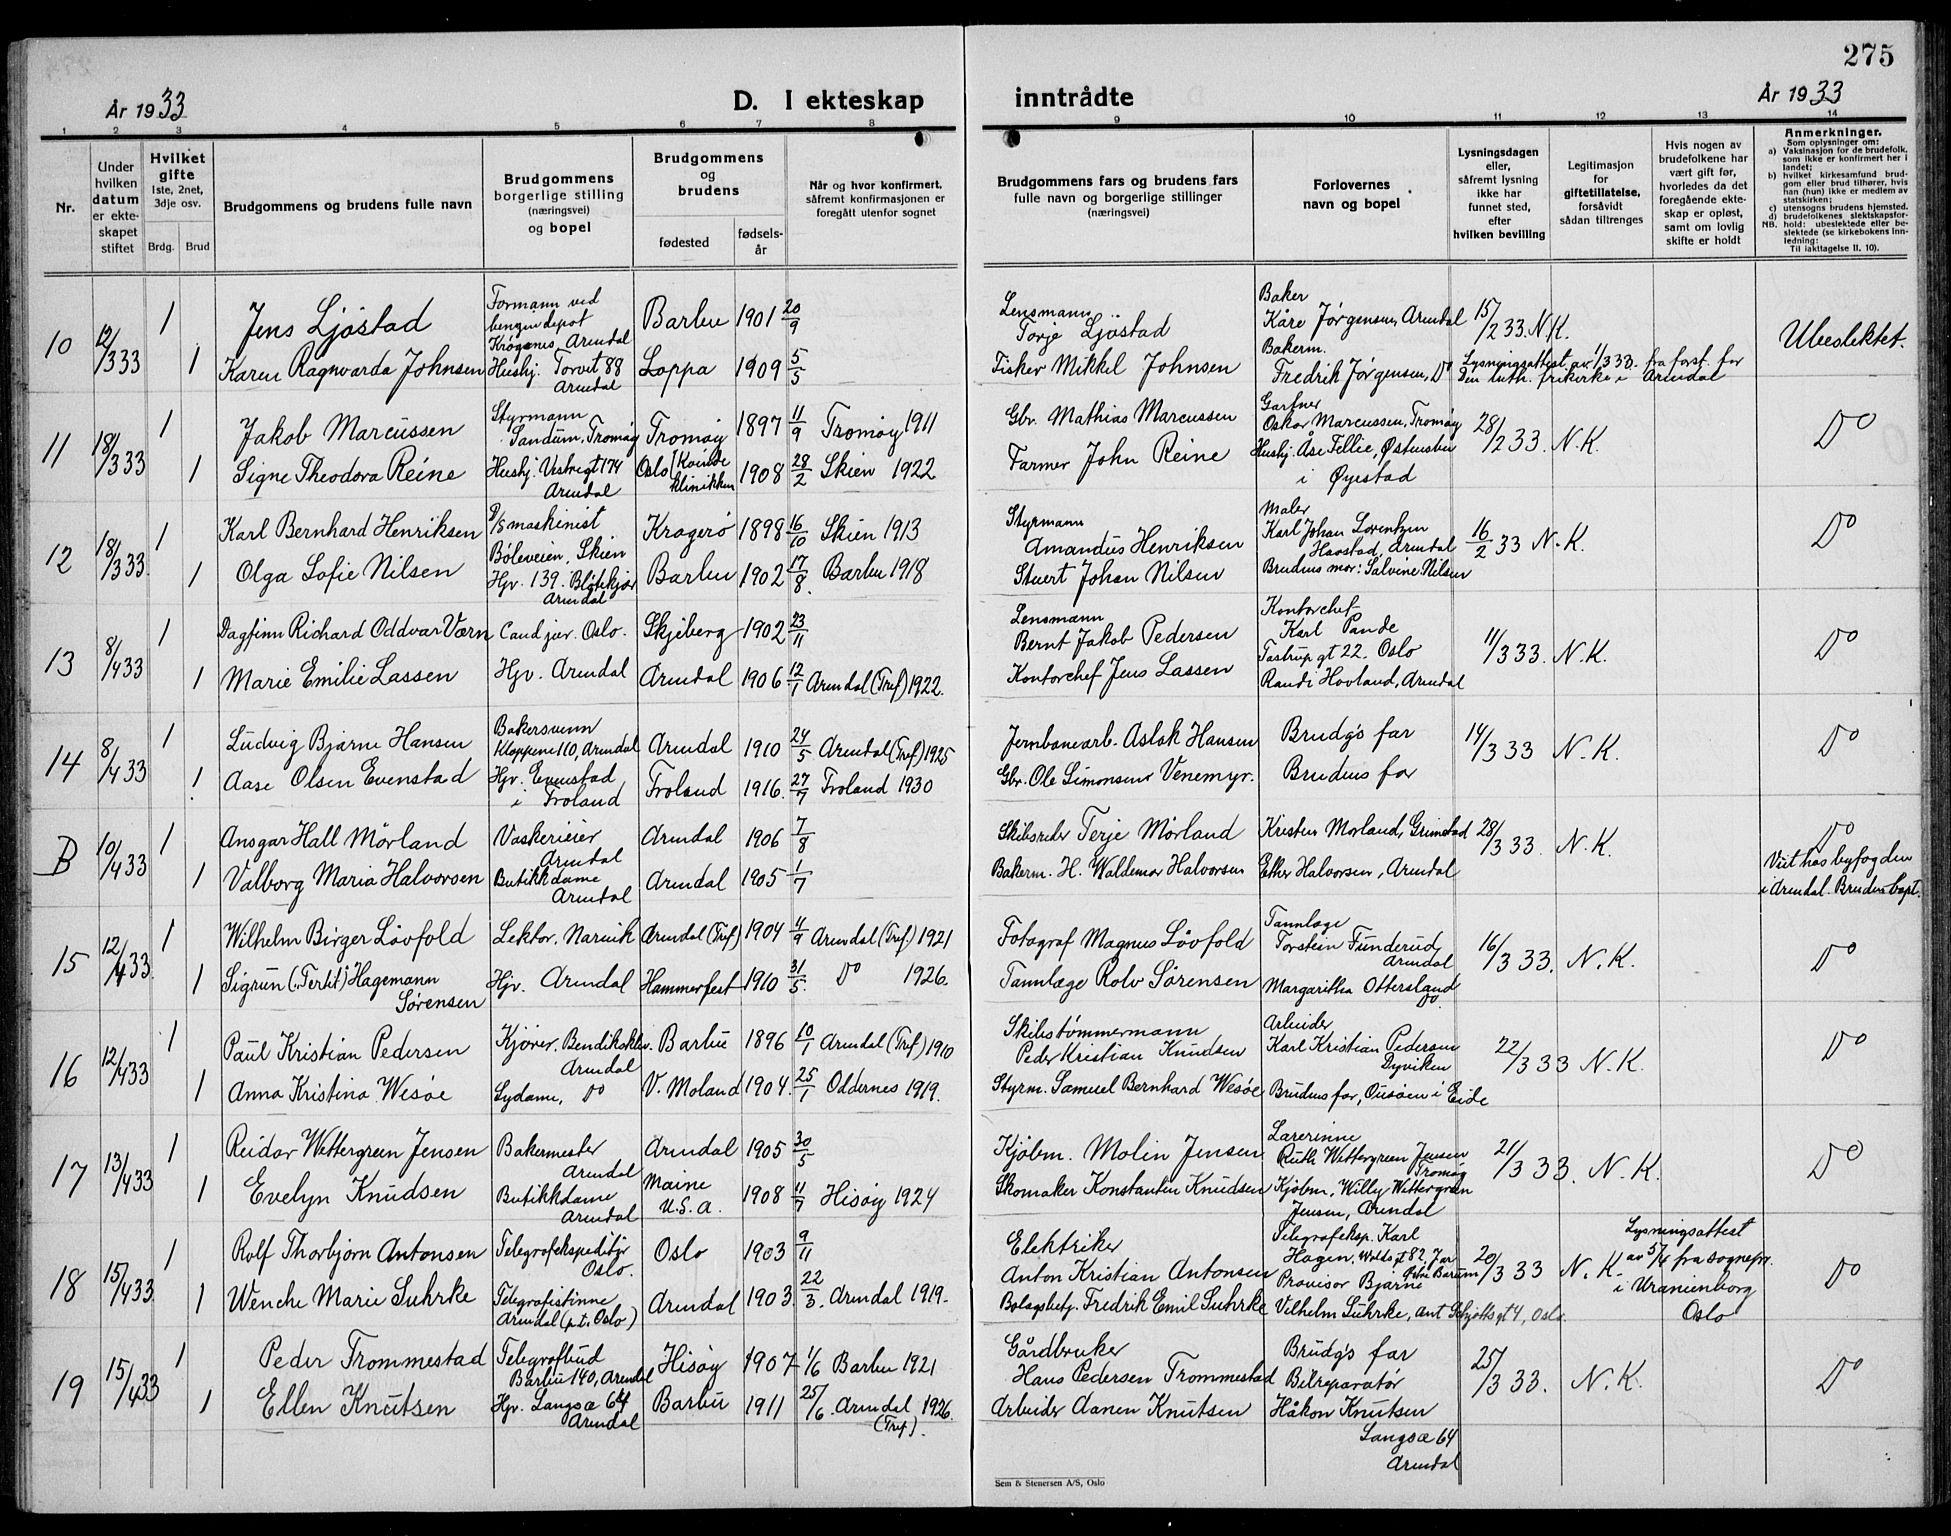 275
År 1933
D. I ekteskap inntrådte
År 1933
1 2 3 4 5 6 7 8 9 10 11 12 13 14
Nr.
Under hvilken datum er ekteskapet stiftet
Hvilket gifte
1ste, 2net, 3dje osv.
Brdg. Brud
Brudgommens og brudens fulle navn
Brudgommens borgerlige stilling (næringsvei) og bopel
Brudgommens og brudens
fødested
fødselsår
Når og hvor konfirmert, såfremt konfirmasjonen er foregått utenfor sognet
Brudgommens fars og brudens fars fulle navn og borgerlige stillinger (næringsvei)
Forlovernes navn og bopel
Lysningsdagen eller, såfremt lysning ikke har funnet sted, efter hvilken bevilling
Legitimasjon for giftetillatelse, forsåvidt sådan tiltrenges
Hvis nogen av brudefolkene har vært gift før, hvorledes da det foregående ekteskap er opløst, samt om lovlig skifte er holdt
Anmerkninger.
Som oplysninger om:
a) Vaksinasjon for de brudefolk, som ikke er konfirmert her i landet;
b) hvilket kirkesamfund brudgom eller brud tilhører, hvis han (hun) ikke er medlem av statskirken;
c) utensogns brudens hjemsted.
d) brudefolkenes slektskapsforhold: ubeslektede eller beslektede (se kirkebokens innledning:
NB. Til iakttagelse II. 10).
10 12/3 33 1 Jens Ljöstad Formann ved bengindepot Krögenes, Arendal Barbu 1901 20/9 Lensmann Torje Ljöstad Baker Kåre Jørgensen, Arendal 15/2 33 N.K. Ubeslektet.
1 Karen Ragnvarda Johnsen Hushj. Torvet 88 Arendal Loppa 1909 5/5 Fisker Mikkel Johnsen Bakerm. Fredrik Jørgensen, Do Lysningsattest av 1/3 33 fra forst. for Den luth. frikirke i Arendal
11 18/3 33 1 Jakob Marcussen Styrmann Sandum, Tromøy Tromøy 1897 11/9 Tromøy 1911 Gbr. Mathias Marcussen Gartner Oskar Marcussen, Tromøy 28/2 33 N.K. Do
1 Signe Theodora Reine Hushj. Vestregt 174 Arendal Oslo Kvinneklinikken 1908 28/2 Skien 1922 Farmer John Reine Hushj. Åse Tellie, Østensbu i Øyestad
12 18/3 33 1 Karl Bernhard Henriksen D/S maskinist Böleveien, Skien Kragerö 1898 16/10 Skien 1913 Styrmann Amandus Henriksen Maler Karl Johan Lorentzen Havstad, Arendal 16/2 33 N.K. Do
1 Olga Sofie Nilsen Hgv. 139. Blötekjær Arendal Barbu 1902 17/8 Barbu 1918 Stuert Johan Nilsen Brudens mor: Salvine Nilsen
13 8/4 33 1 Dagfinn Richard Oddvar Værn Cand jur. Oslo. Skjeberg 1902 23/11 Lensmann Bernt Jakob Pedersen Kontorchef Karl Pande Tastrup gt 22. Oslo 11/3 33. N.K. Do
1 Marie Emilie Lassen Hgv. Arendal Arendal 1906 12/1 Arendal (Tref) 1922. Kontorchef Jens Lassen Randi Hovland, Arendal
14 8/4 33 1 Ludvig Bjarne Hansen Bakersvenn Kloppene 110, Arendal Arendal 1910 24/5 Arendal (Tref) 1925 Jernbanearb. Aslak Hansen Brudgs far 14/3 33 N.K. Do
1 Aase Olsen Evenstad Hgv. Evenstad i Froland Froland 1916. 27/7 Froland 1930 Gbr. Ole Simonsen Venemyr. Brudens far
B 10/4 33 1 Ansgar Hall Mörland Vaskerieier Arendal Arendal 1906 7/8 Skibsreder Terje Mörland Kristen Mörland, Grimstad 28/3 33 N.K. Do
1 Valborg Maria Halvorsen Butikkdame Arendal Arendal 1905 1/7 Bakerm. H. Waldemar Halvorsen Ester Halvorsen, Arendal Viet hos byfogden i Arendal. Bruden bapt.
15 12/4 33 1 Wilhelm Birger Lövfold Lektor. Narvik Arendal (Tref) 1904 11/9 Arendal (Tref.) 1921 Fotograf Magnus Lövfold Tannlæge Torstein Funderud Arendal 16/3 33. N.K. Do
1 Sigrun ("Tertit") Hagemann Sørensen Hgv. Arendal Hammerfest 1910 31/5 Do 1926. Tannlæge Rolv Sörensen Margaritha Ottersland Do
16 12/4 33 1 Paul Kristian Pedersen Kjörer. Bendiksklev. Arendal Barbu 1896 10/1 Arendal (Tref) 1910 Skibstømmermann Peder Kristian Knudsen Arbeider Karl Kristian Pedersen Dyviken 22/3 33 N.K. Do
1 Anna Kristina Wesöe Sydame, Do V. Moland 1904. 25/1 Oddernes 1919. Styrm. Samuel Bernhard Wesöe Brudens far, Ousöen i Eide
17 13/4 33 1 Reidar Wettergreen Jensen Bakermester Arendal Arendal 1905 30/5 Kjöbm. Molin Jensen Lærerinne Ruth Wettergreen Jensen Tromøy 21/3 33. N.K. Do
1 Evelyn Knudsen Butikkdame Arendal Maine U.S.A. 1908 11/7 Hisöy 1924 Skomaker Konstanten Knudsen Kjøbm. Willy Wettergren Jensen, Arendal
18 15/4 33 1 Rolf Thorbjörn Antonsen Telegrafekspeditör Oslo. Oslo 1903 9/11 Elektriker Anton Kristian Antonsen Telegrafeksp. Karl Hagen, Wolds gt 82, Jar Østre Bærum 20/3 33 N.K. Lysningsattest av 5/4 fra sognepr. i Uranienborg Oslo Do
1 Wenche Marie Suhrke Telegrafistinne Arendal (p.t. Oslo) Arendal 1903 22/3. Arendal 1919. Bolagsbetj. Fredrik Emil Suhrke Provisor Bjarne Vilhelm Suhrke, Ant Schjøtts gt 4, Oslo.
19 15/4 33 1 Peder Trommestad Telegrafbud Barbu 140, Arendal Hisöy 1907 1/6 Barbu 1921 Gårdbruker Hans Pedersen Trommestad Brudgs far 25/3 33. N.K. Do
1 Ellen Knutsen Hgv. Langsæ 64 Arendal Barbu 1911 25/6. Arendal 1926. (Tref). Arbeider Aanen Knutsen Bilreparatör Håkon Knutsen Langsæ 64 Arendal
Sem & Stenersen A/S, Oslo